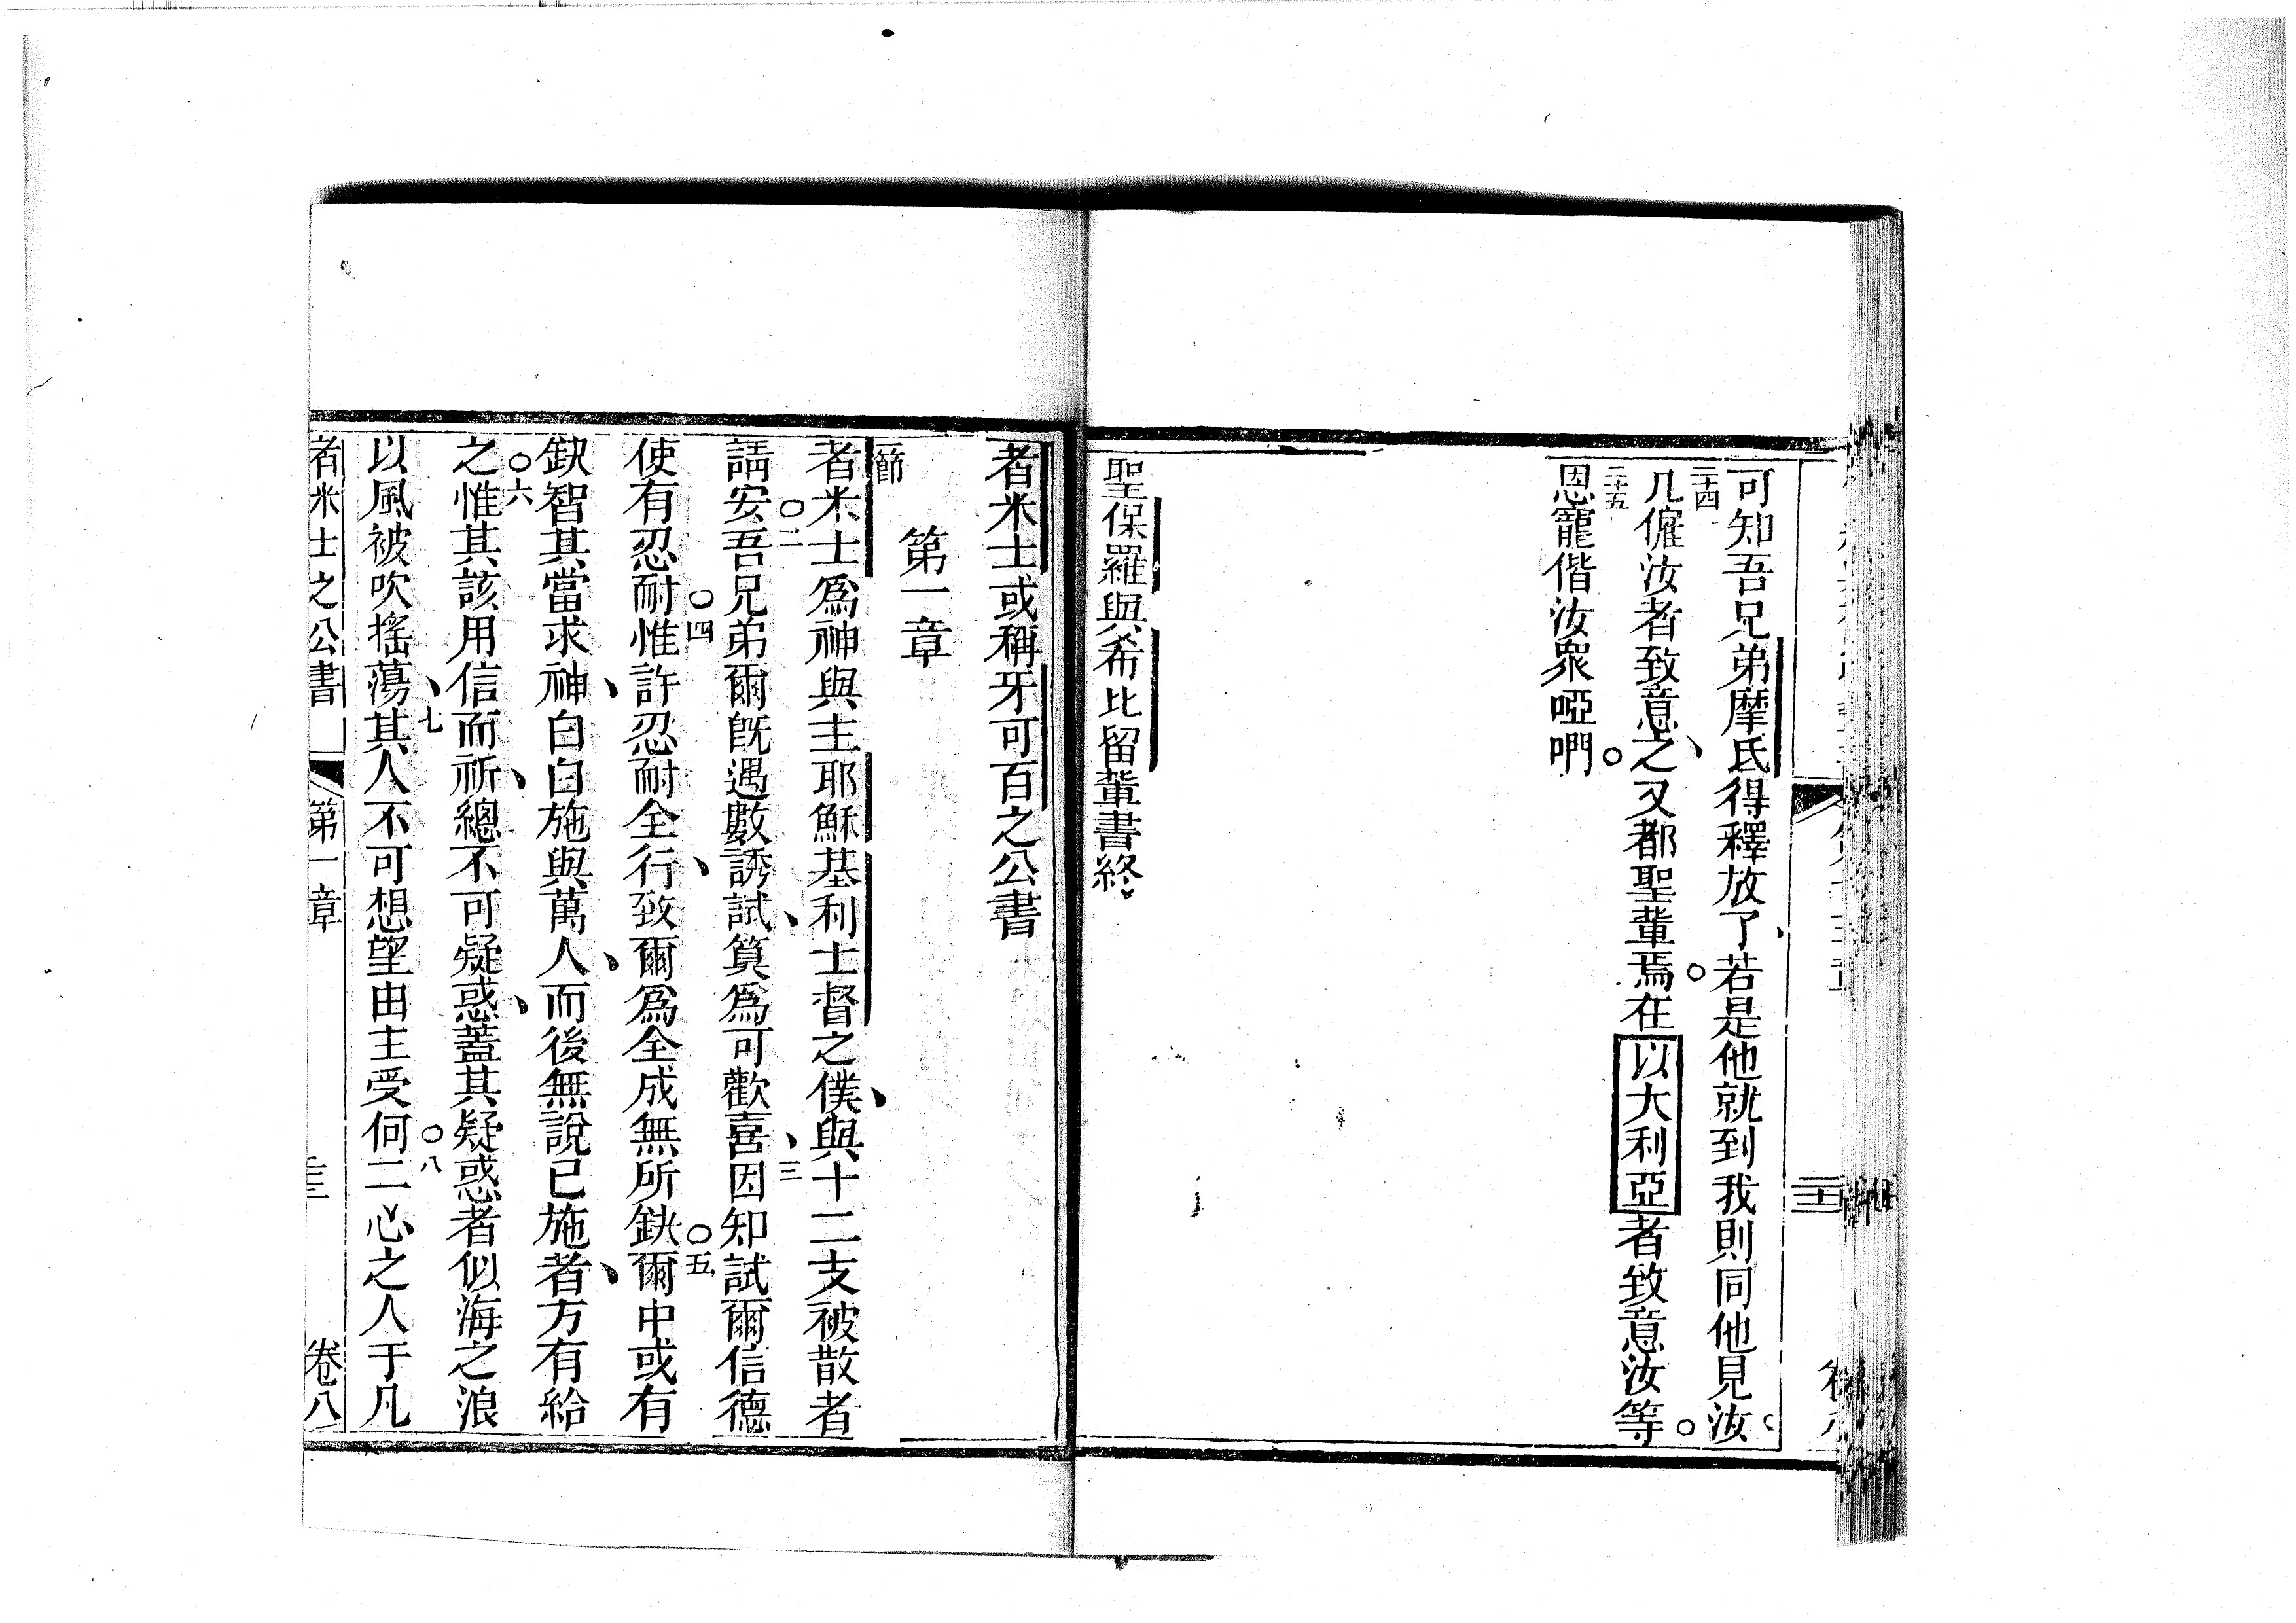 可知吾兄弟摩氏得釋放了、若是他就到我則同他見汝
二十四
凡僱汝者致意之、又都聖輩焉。在以大利亞者致意汝等。
二十五
恩寵偕汝衆。啞唎
聖保羅與希比留輩書終
者米士或稱牙可百之公書
第一章
一節
者米士爲神與主耶穌基利士督之僕、與十二支被散者
○二
請安吾兄弟爾旣遇數誘試、算爲可歡喜、因知試爾信德
三
使有忍耐惟許忍耐全行、致爾爲全成無所缺爾中或有
○四 ○五
缺智其當求神、白白施與萬人、而後無說已施者、方有給
之惟其該用信而祈、總不可疑惑、蓋其疑惑者似海之浪
○六
以風被吹搖蕩、其人不可想望由主受何二心之人于凡
七 ○八
者米士之公書 第一章 卷八